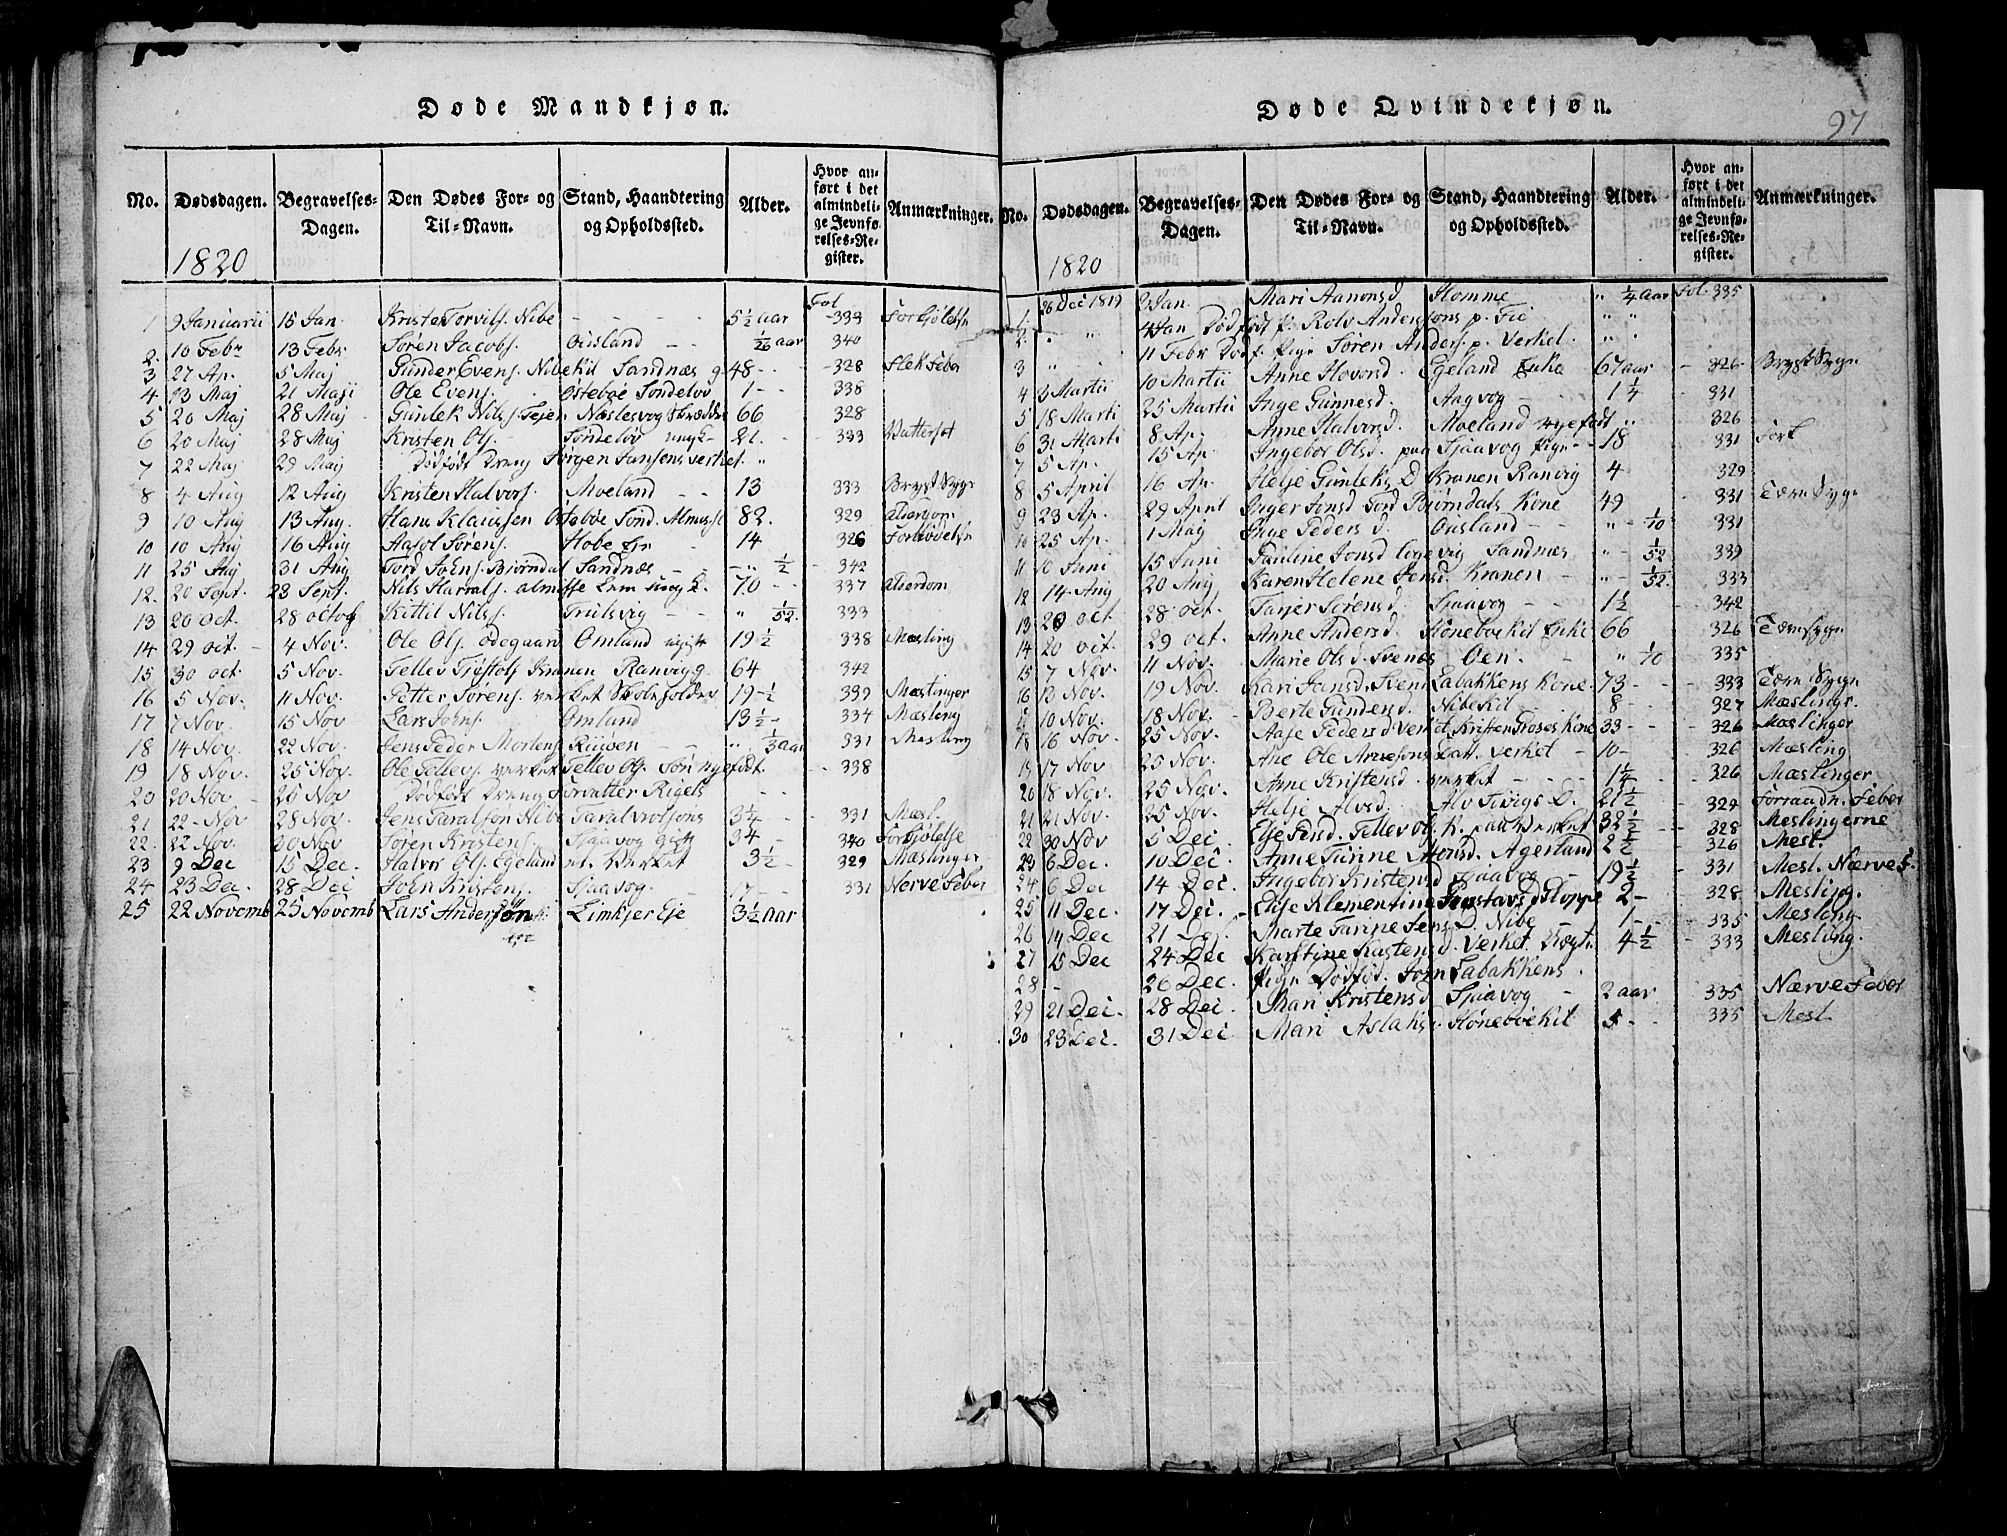 Døde Mandkjøn.
No. Dødsdagen. Begravelses-Dagen. Den Dødes For- og Til-Navn. Stand, Haandtering og Opholdssted. Alder. Hvor anført i det almindelige Jevnførelses-Register. Anmærkninger.
1820
Fol
1 9 Januarii 15 Jan Kristen Torvils. Nibe - - - 5 1/2 aar - 334
2. 10 Febr 13 Febr Søren Jacobs. Ousland - - 1/26 aar 340
3 27 Ap. 5 Maj Gunder Evens. Nibekil Sandnæs 48 - - - 328 Flekfeber
4 13 Maj 21 Maji Ole Evens. Østebøe Søndeløv 1 - - 338
5 20 Maj 28 Maj Gunlek Nils. Næslesvog Skrædder 66 328
6 20 Maj 28 Maj Kristen Ols. - Søndeløv ungk- 21. - - 333
7 22 Maj 29 Maj Dødfødt Dreng Jørgen Jansens verket. "
8 4 Aug 12 Aug Kristen Halvors. Moeland - - 13 333 BrystSyge
9 10 Aug 13 Aug. Hans Klausen Østebøe Sønd. 82. - 329 alderdom
10 10 Aug 16 Aug Aasol Sørens. Hobe - 14 326
11 25 Aug 31 Aug Tord Johns. Biørndal Sandnæs - - - " 1/2 - 342
12. 20 Sept. 23 Sept. Nils Harals. 70 - - 337 alderdom
13 20 oct. 28 octob Kittil Nils. Trulsvig - - " 1/52. 333
14 29 oct. - 4 Nov. Ole Ols. ødegaard Omland ugift 19 1/2 338 Mæsling
15 30 oct. 5 Nov. Tellev Tjøstols Kranen Ranvigg 64 342
16 5 Nov. 11 Nov. Petter Sørens. verket Skoleholder 19-1/2 - 339 Mæslinger
17 7 Nov. 15 Nov Lars Johns. Omland 13 1/2 - - 334 Mæsling
18 14 Nov. 22 Nov. Jens Peder Mortens. Riisøen - - " 1/3 aar 331 Mesling
19 18 Nov. 25 Nov. Ole Tellevs. verket Tellev Ols. Søn nyefødt. - - 338
20 20 Nov - 25 Nov Dødfødt Dreng Torvatter Rigels - -
21 22 - Nov 28 Nov. Jens Taralson Nibe Taral 3 1/4 - - 331 Mæsl.
22. 22 Nov. 30 Nov Søren Kristens. Sjaavog gift 34 - - 340 Forkjølelse
23 9 Dec 15 Dec. Halvor Ols. Egeland verket 3 1/2 - 329 Mæslinger
24 23 Dec. 28 Dec John Kristens. Sjaavog. 17 - - 331 NerveFeber
25 22 Novemb 25 Novemb Lars Anderson Limkjer Eje 3 1/2 aar
Døde Qvindekjøn.
97
No. Dødsdagen. Begravelses-Dagen. Den Dødes For- og Til-Navn. Stand, Haandtering og Opholdssted. Alder. Hvor anført i det almindelige Jevnførelses-Register. Anmærkninger.
1820
1. 26 Dec 1819 2 Jan Mari Aanonsd Homme " 1/4 aar Fol. 335
2. " " 4 Jan Dødfødt P. Rolv Anderssons p. Fie " "
3 " 11 Febr Dødf. Pige Søren Anders. p. Verket. " "
4 3 Martii 10 Martii Anne Hovorsd. Egeland Enke 67 aar - 326 - BrystSyge
5 18 Marti 25 Martii Inge Gunnesd. Aagvog - - 1 1/4 331
6 31 Marti 8 Ap. Anne Halvorsd. Moeland nyefødt " 326
7 5 Ap. 15 Ap Ingebor Olsd. paa Sjaavog Pige - 18 331
8 5 April 16 Ap. Helje Gunleks D Kranen Ranvig 4 329
9 23 Ap. 29 April Inger Jonsd Tord Biørndals Kone 49 - 331 TærreSyge
10 25 Ap. 1 Maj Inge Peders d. Ousland - - " - 1/10 331
11 10 Juni 15 Juni Pauline Jonsd Sandnæs " - 1/52 339
12 14 Aug 20 Aug Karen Helene Jensd. Kranen - " - 1/52. 333
13 20 oct. 28 oct. Tarjer Sørensd. Sjaavog - - 1 1/2 - 342
14 20 oct. 29 oct. Anne Andersd. Høneboekil Enke 66 326 TærreSyge
15 7 Nov. 11 Nov. Marie Olsd. Svenæs Oen. - " 1/10 335
16 12 Nov. 19 Nov. Kari Jansd. Sven Labakkens Kone 73 - - 333 TærreSyge
17 10 Nov. 18 Nov. Berte Gundersd. Nibekil - - 8 - - 327 Mæslinge
18 16 Nov. 25 Nov. Aaje Pedersd Verket Kristen Fosses Kone 33 - - 326 Mæslinger
19 17 Nov 25 Nov. Ane Ole Arnesons Datt. Verket - 10 - 326 Mæsling
20 18 Nov. 25 Nov. Anne Kristensd. verket - - - 1 1/4 - 326 Mæslinger
21 21 Nov. 25 Nov. Helje Alvsd. Alv D. 21 1/2 - 329 Forraadn. Feber
22 30 Nov 5 Dec Elje Tellev Ols. K. paa Verket 32 1/2 - 328 Meslingerne
23 6 Dec. 10 Dec Anne Turine Agerland 2 1/2 326 Mesl.
24 6 Dec 14 Dec. Ingebor Kristensd Sjaavog - 19 1/2 - 331 Mesl. Nærvef.
25 11 Dec. 17 Dec. Elise Klementine Gustavsd Kloppe 2 - 328 Mesling.
26 14 Dec 21 Dec Marte Tarine Jens D. Nibe 1 - - 335 Mesling
27 15 Dec 24 Dec Karstine Kastensd. Verket. 4 1/2 - 333 Mesling.
28 - 26 Dec. Pige Dødfød. John Labakkens.
29 21 Dec. 28 Dec. Mari Kristensd Sjaavog - 2 aar 335 NærveFeber
30 23 Dec. 31 Dec. Mari Aslaks. Hønebøekil 5 - 335 Mesl